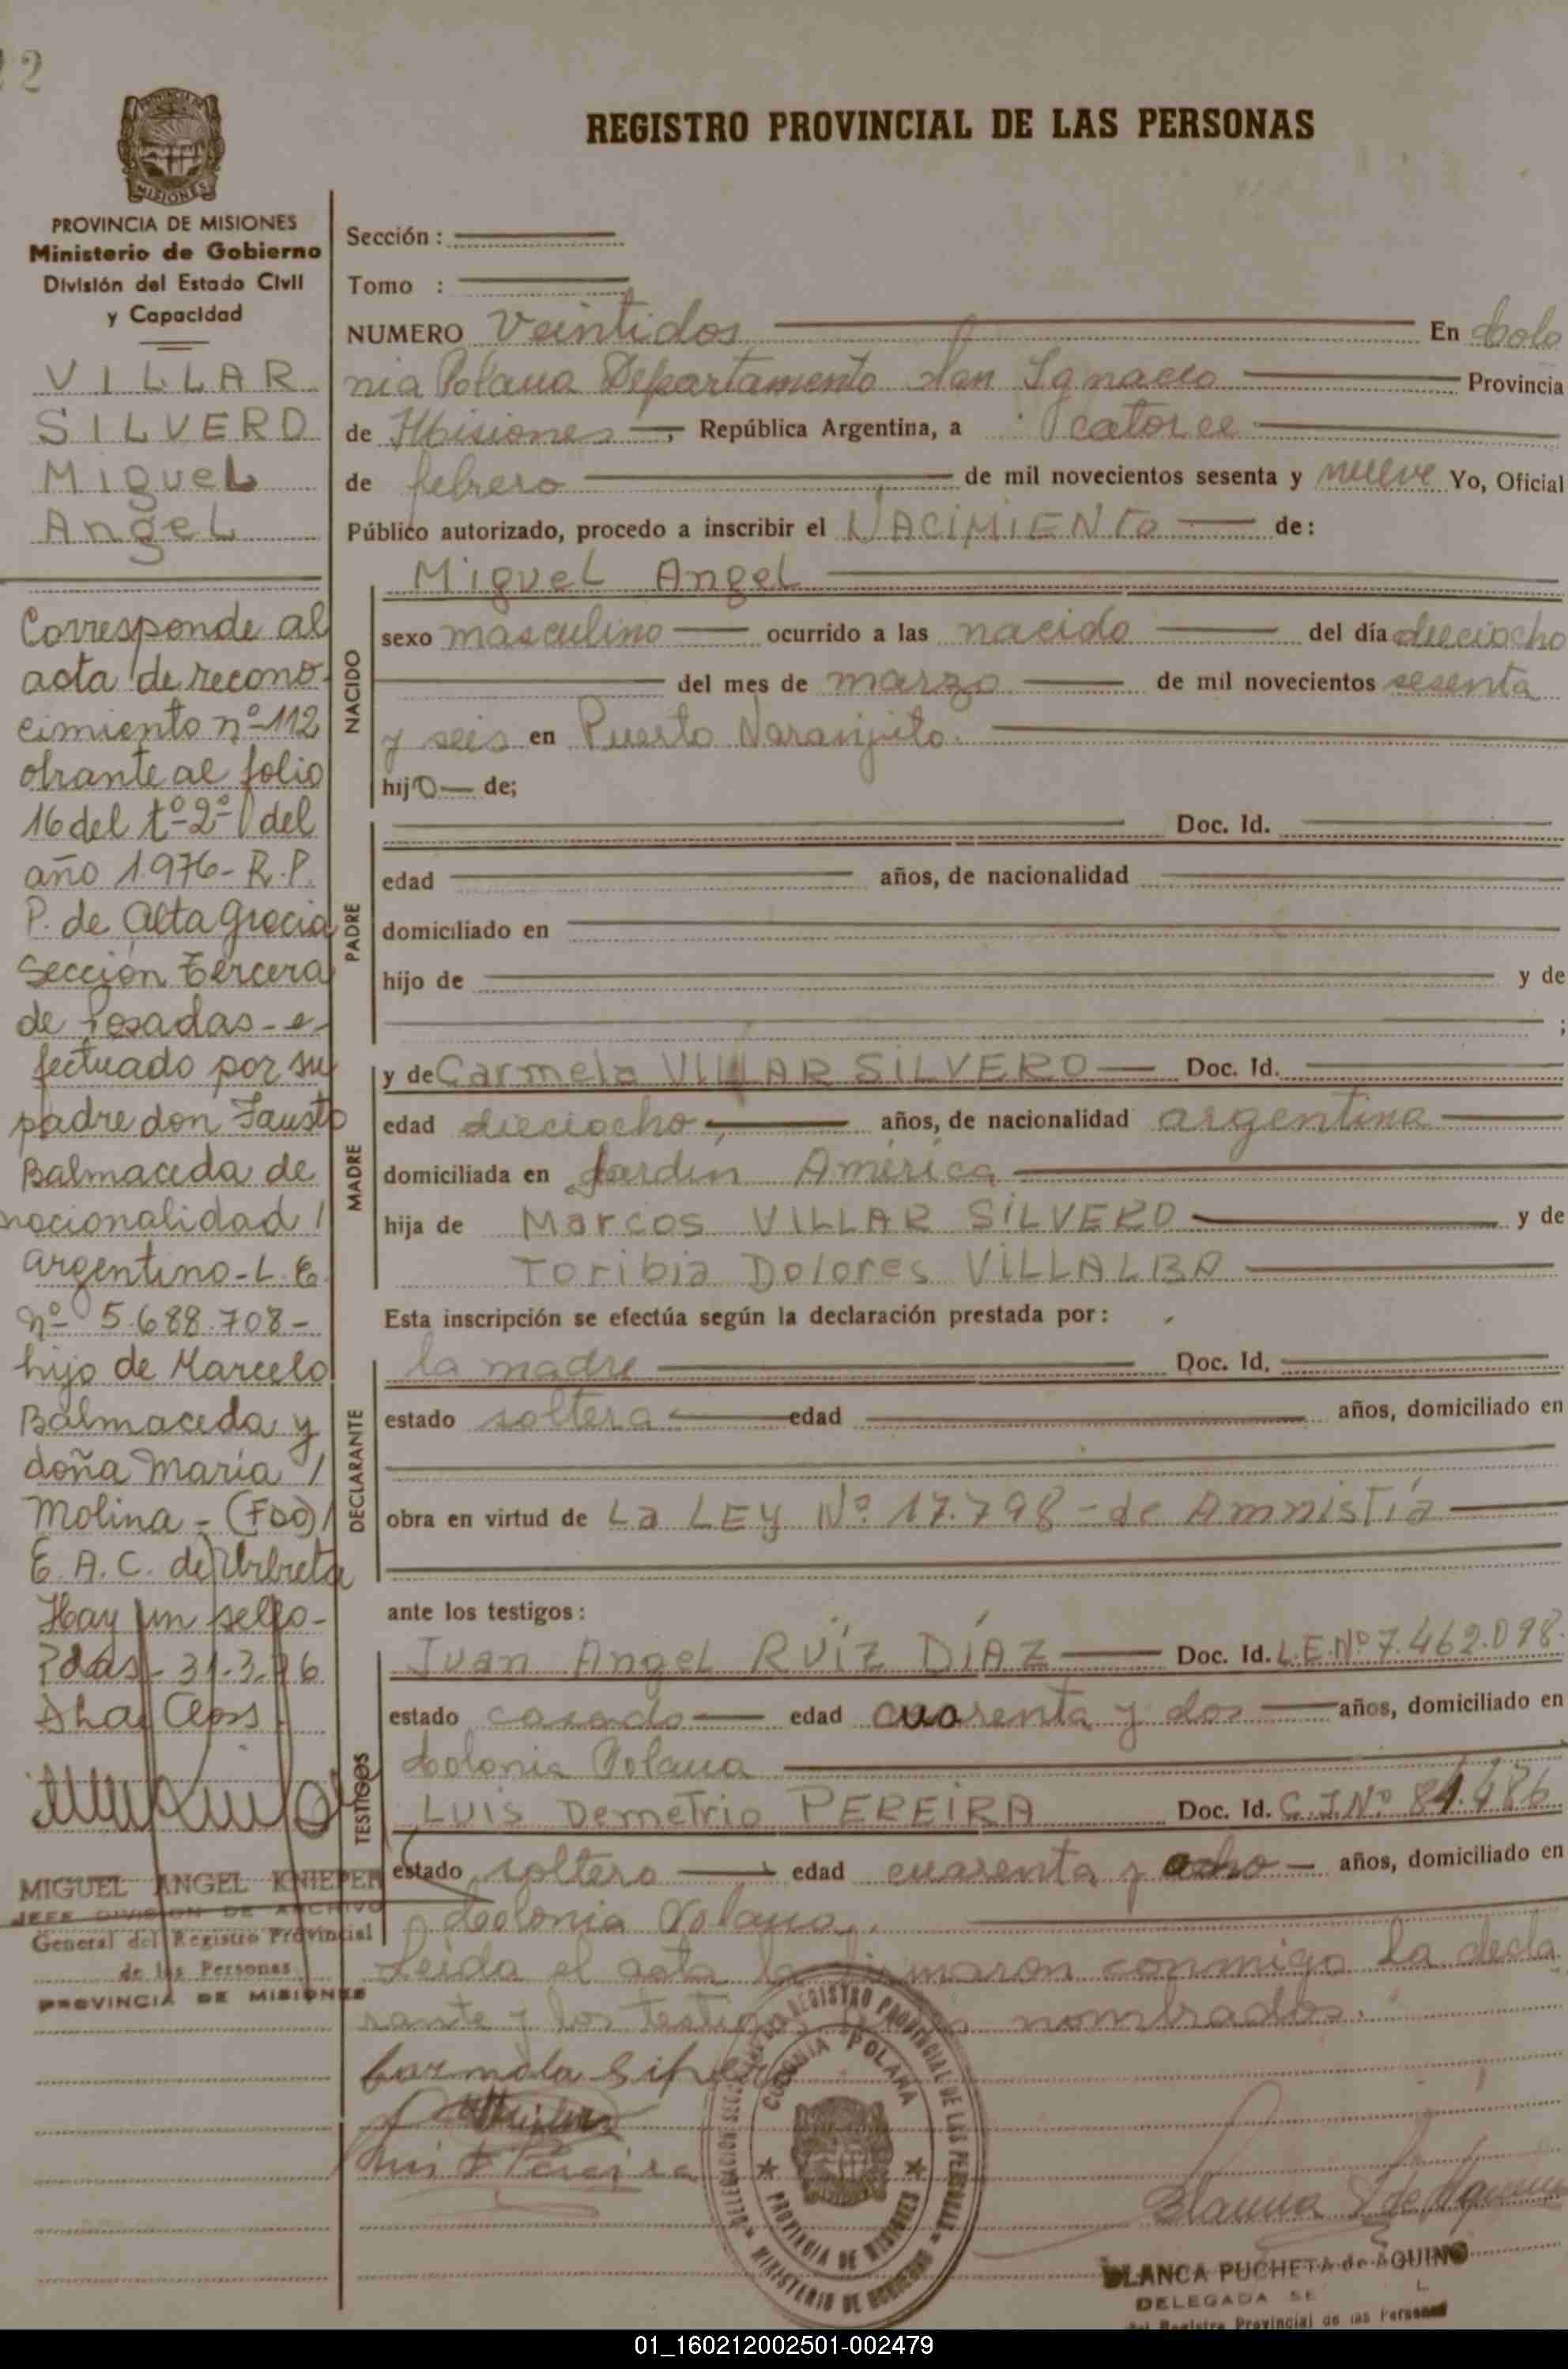 22
REGISTRO PROVINCIAL DE LAS PERSONAS
PROVINCIA DE
MISIONES
PROVINCIA DE MISIONES
Ministerio de Gobierno
División del Estado Civil
y Capacidad
VILLAR
SILVERO
Miguel
Angel
Corresponde al
acta de recono-
cimiento nº 112
obrante al folio
16 del tº 2º del
año 1976- R.P.
P. de Alta Gracia
Sección Tercera
de Posadas - e-
fectuado por su
padre don Fausto
Balmaceda de
nacionalidad /
argentino - L.E.
nº 5.688.708-
hijo de Marcelo
Balmaceda y
doña María /
Molina - (Fdo) /
E. A. C. de Urbieta
Hay un sello-
Pdas- 31-3-76
MIGUEL ANGEL KNIEPER
JEFE DIVISION DE ARCHIVO
General del Registro Provincial
de las Personas
PROVINCIA DE MISIONES
Sección :
Tomo :
NUMERO Veintidos En Colo
nia Polana Departamento San Ignacio Provincia
de Misiones, República Argentina, a catorce
de febrero de mil novecientos sesenta y nueve Yo, Oficial
Público autorizado, procedo a inscribir el NACIMIENTO de:
NACIDO
Miguel Angel
sexo masculino ocurrido a las nacido del día dieciocho
del mes de marzo de mil novecientos sesenta
y seis en Puerto Naranjito.
hijo de;
PADRE
Doc. Id.
edad años, de nacionalidad
domiciliado en
hijo de y de
;
MADRE
y de Carmela VILLAR SILVERO Doc. Id.
edad dieciocho años, de nacionalidad argentina
domiciliada en Jardín América
hija de Marcos VILLAR SILVERO y de
Toribia Dolores VILLALBA
Esta inscripción se efectúa según la declaración prestada por:
DECLARANTE
la madre Doc. Id.
estado soltera edad años, domiciliado en
obra en virtud de La LEY Nº 17.798 - de Amnistía
ante los testigos:
TESTIGOS
Juan Angel RUÍZ DÍAZ Doc. Id. L.E.Nº 7.462.098.
estado casado edad cuarenta y dos años, domiciliado en
Colonia Polana
Luis Demetrio PEREIRA Doc. Id. C.I.Nº 81.486
estado soltero edad cuarenta y ocho años, domiciliado en
Colonia Polana.
Leida el acta la firmaron conmigo la decla
rante y los testigos nombrados.
Carmela Silvero
Luis D Pereira
REGISTRO PROVINCIAL DE LAS PERSONAS
COLONIA POLANA
PROVINCIA DE MISIONES
MINISTERIO DE GOBIERNO
Blanca P de Aquino
BLANCA PUCHETA de AQUINO
DELEGADA
del Registro Provincial de las Personas
01_160212002501-002479